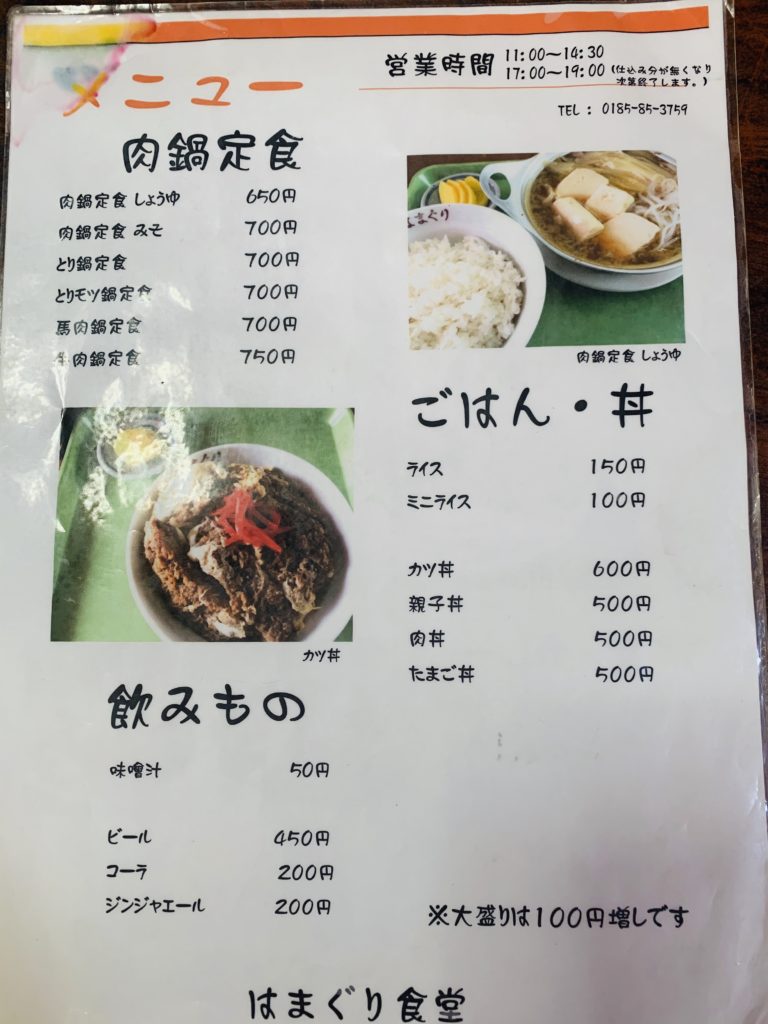 メニュー
営業時間 11:00～14:30
17:00～19:00 (仕込み分が無くなり
次第終了します。)
TEL : 0185-85-3759
肉鍋定食
肉鍋定食 しょうゆ 650円
肉鍋定食 みそ 700円
とり鍋定食 700円
とりモツ鍋定食 700円
馬肉鍋定食 700円
牛肉鍋定食 750円
はまぐり
肉鍋定食 しょうゆ
ごはん・丼
ライス 150円
ミニライス 100円
カツ丼 600円
親子丼 500円
肉丼 500円
たまご丼 500円
カツ丼
飲みもの
味噌汁 50円
ビール 450円
コーラ 200円
ジンジャエール 200円
※大盛りは100円増しです
はまぐり食堂